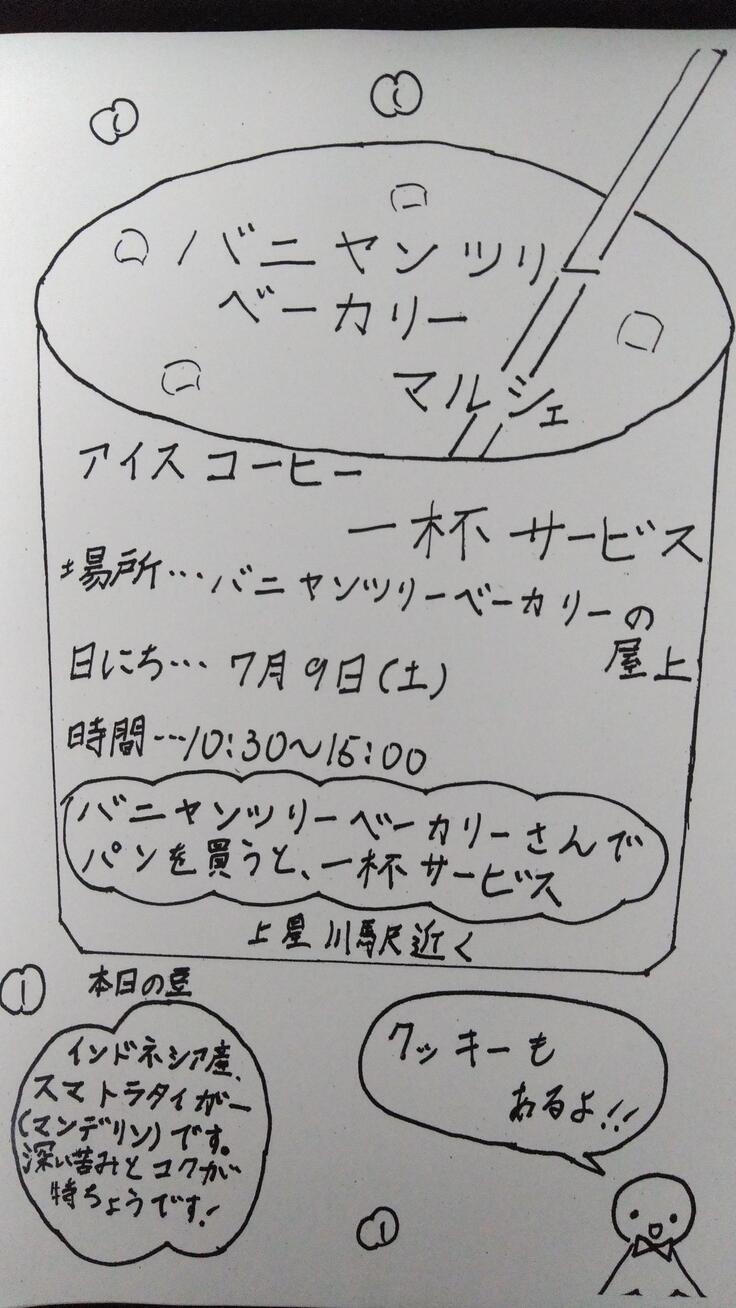 バニヤンツリー
ベーカリー
マルシェ
アイスコーヒー
一杯サービス
場所…バニヤンツリーベーカリーの
屋上
日にち…7月9日(土)
時間…10:30~15:00
バニヤンツリーベーカリーさんで
パンを買うと、一杯サービス
上星川駅近く
本日の豆
インドネシア産、
スマトラタイガー
(マンデリン)です。
深い苦みとコクが
特ちょうです!
クッキーも
あるよ!!